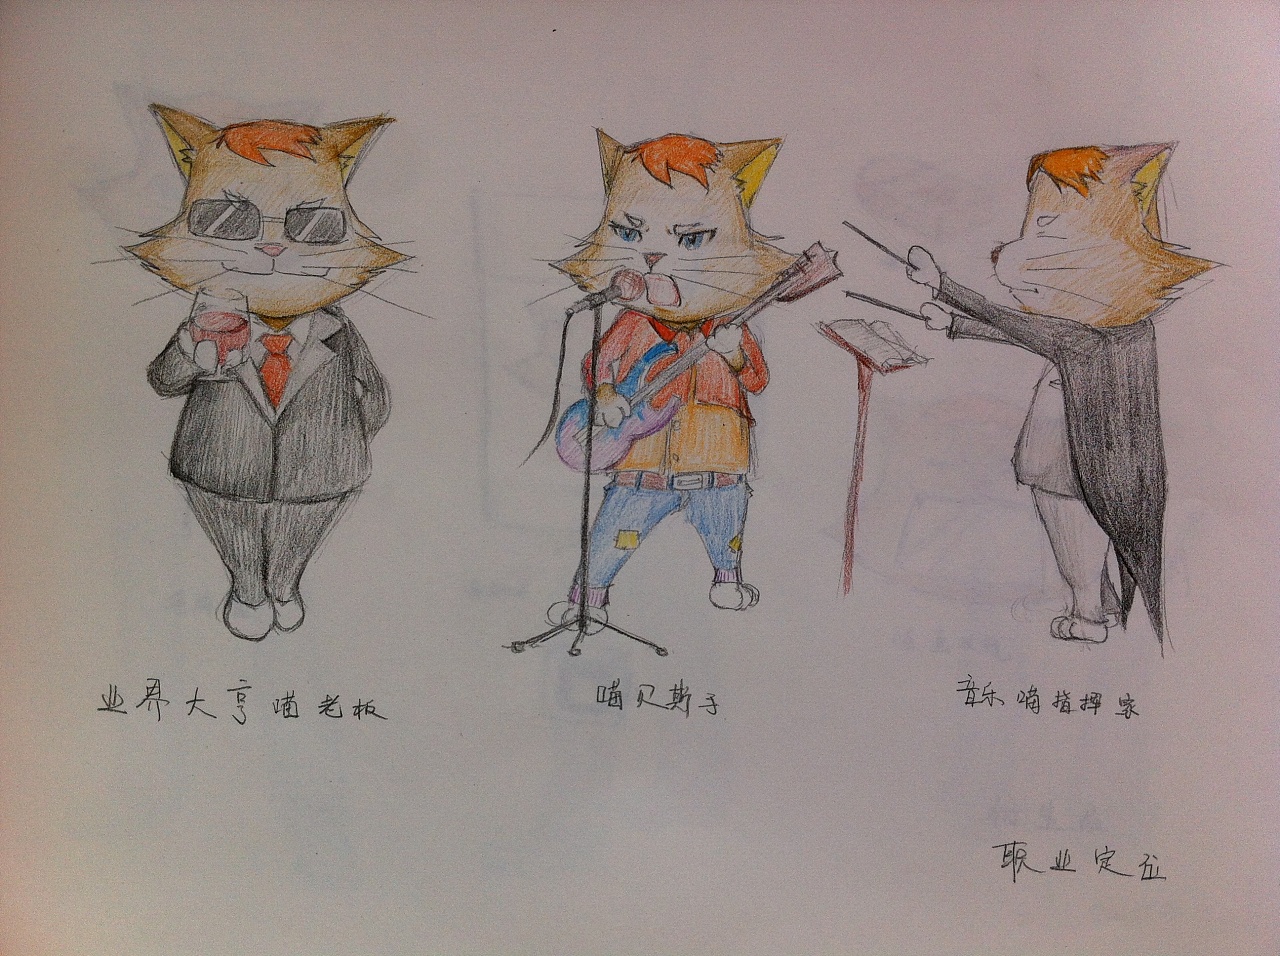 业界大亨喵老板
喵贝斯手
音乐喵指挥家
职业定位